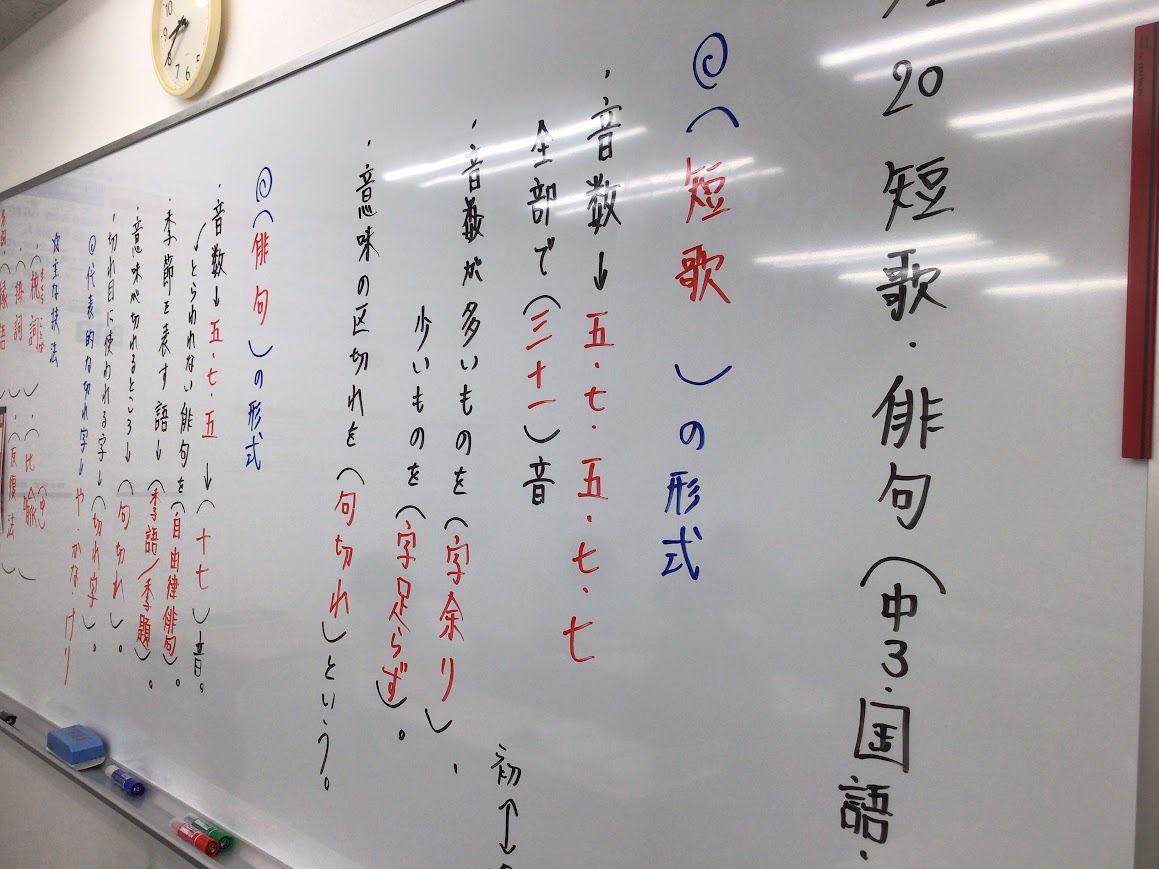 20 短歌・俳句(中3.国語.
@(短歌)の形式
・音数→五・七・五・七・七
全部で(三十一)音
初↔
・音数が多いものを(字余り)、
少いものを(字足らず)。
・意味の区切れを(句切れ)という。
@(俳句)の形式
・音数→五・七・五→(十七)音。
とらわれない俳句を(自由律俳句)。
・季節を表す語→(季語/季題)。
・意味が切れるところ→(句切れ)。
・切れ目に使われる字→(切れ字)。
@代表的な切れ字→や・かな・けり
☆主な技法
・(枕詞)・(比喩)
・(掛詞)・(反復法)
(縁語)
10
9
8
7
6
5